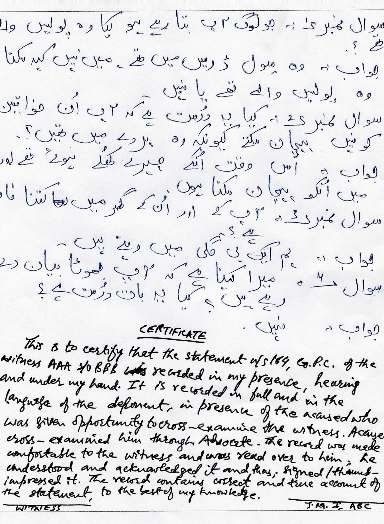 سوال نمبر 1:۔ جو لوگ آپ بتا رہے ہو کیا وہ پولیس والے
تھے؟
جواب:۔ وہ سول ڈریس میں تھے۔ میں نہیں کہہ سکتا
وہ پولیس والے تھے یا نہیں۔
سوال نمبر 2:۔ کیا یہ درست ہے کہ آپ اُن خواتین
کو نہیں پہچان سکتے کیونکہ وہ پردے میں تھیں؟
جواب:۔ اُس وقت اُنکے چہرے کھُلے ہوئے تھے اور
میں اُنکو پہچان سکتا ہوں۔
سوال نمبر 3:۔ آپ کے اور اُن کے گھر میں کتنا
ہے؟
جواب:۔ ہم ایک ہی گلی میں رہتے ہیں۔
سوال 4:۔ میرا کہنا ہے کہ آپ جھوٹا بیان دے
رہے ہیں، کیا یہ بات درست ہے؟
جواب:۔ نہیں۔
CERTIFICATE
This is to certify that the statement u/s 164, Cr.P.C. of the
witness AAA s/o BBB was recorded in my presence, hearing
and under my hand. It is recorded in full and in the
language of the deponent, in presence of the accused who
was given opportunity to cross-examine the witness. Accused
cross-examined him through Advocate. The record was made
comfortable to the witness and was read over to him; he
understood and acknowledged it and thus, signed/thumb-
impressed it. The record contains correct and true account of
the statement, to the best of my knowledge.
WITNESS J.M. I, ABC